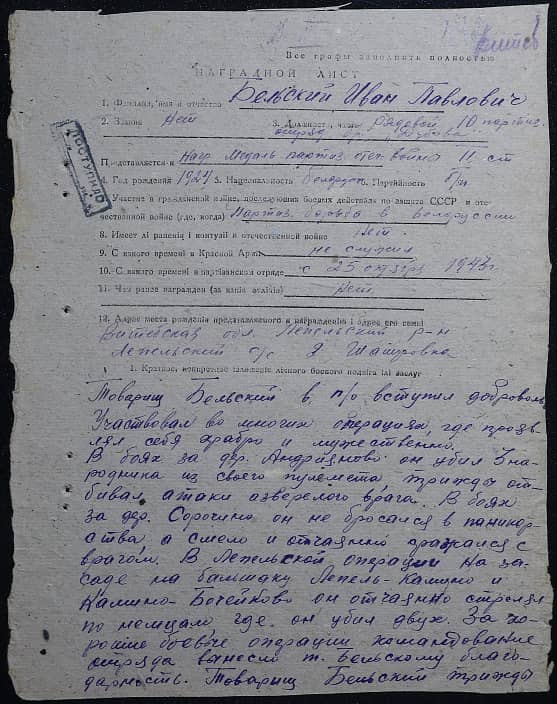 Все графы заполнять полностью
НАГРАДНОЙ ЛИСТ
1. Фамилия, имя и отчество Бельский Иван Павлович
2. Звание нет 3. Должность, часть рядовой 10 партиз.
отряд
ПОСТУПИЛО
Представляется к награ. Медаль партиз. отеч. война II ст
4. Год рождения 1924 5. Национальность белорус 6. Партийность б/п
7. Участие в гражданской войне, последующих боевых действиях по защите СССР и оте-
чественной войне (где, когда) Партиз. борьба в Белоруссии
8. Имеет лі раненія і контузіі в отечественной войне нет.
9. С какого времені в Красной Арміі не служил
10. С какого времені в партізанском отряде с 25 октября 1943 г.
11. Чем ранее награжден (за какіе отлічія) нет
12. Адрес места рожденія представляемого к награжденію і адрес его семьі
Витебская обл. Лепельский р-н
Лепельский с/с д. Шашуровка
1. Краткое, конкретное ізложеніе лічного боевого подвіга ілі заслуг
Товарищ Бельский в п/о вступил доброволь
Участвовал во многих операциях, где прояв-
лял себя храбро и мужественно.
В боях за дер. Андрияново он убил 3 на-
родника из своего пулемета, трижды от-
бивал атаки озверелого врага. В боях
за дер. Сорочино он не бросался в паникор-
ства а смело и отчаянно сражался с
врагом. В Лепельской операции на за-
саде на большаку Лепель-Камино и
Камино-Бочейково он отчаянно стрелял
по немцам где он убил двух. За хо-
рошие боевые операции командование
отряда вынесли т. Бельскому благо-
дарность. Товарищ Бельский трижды